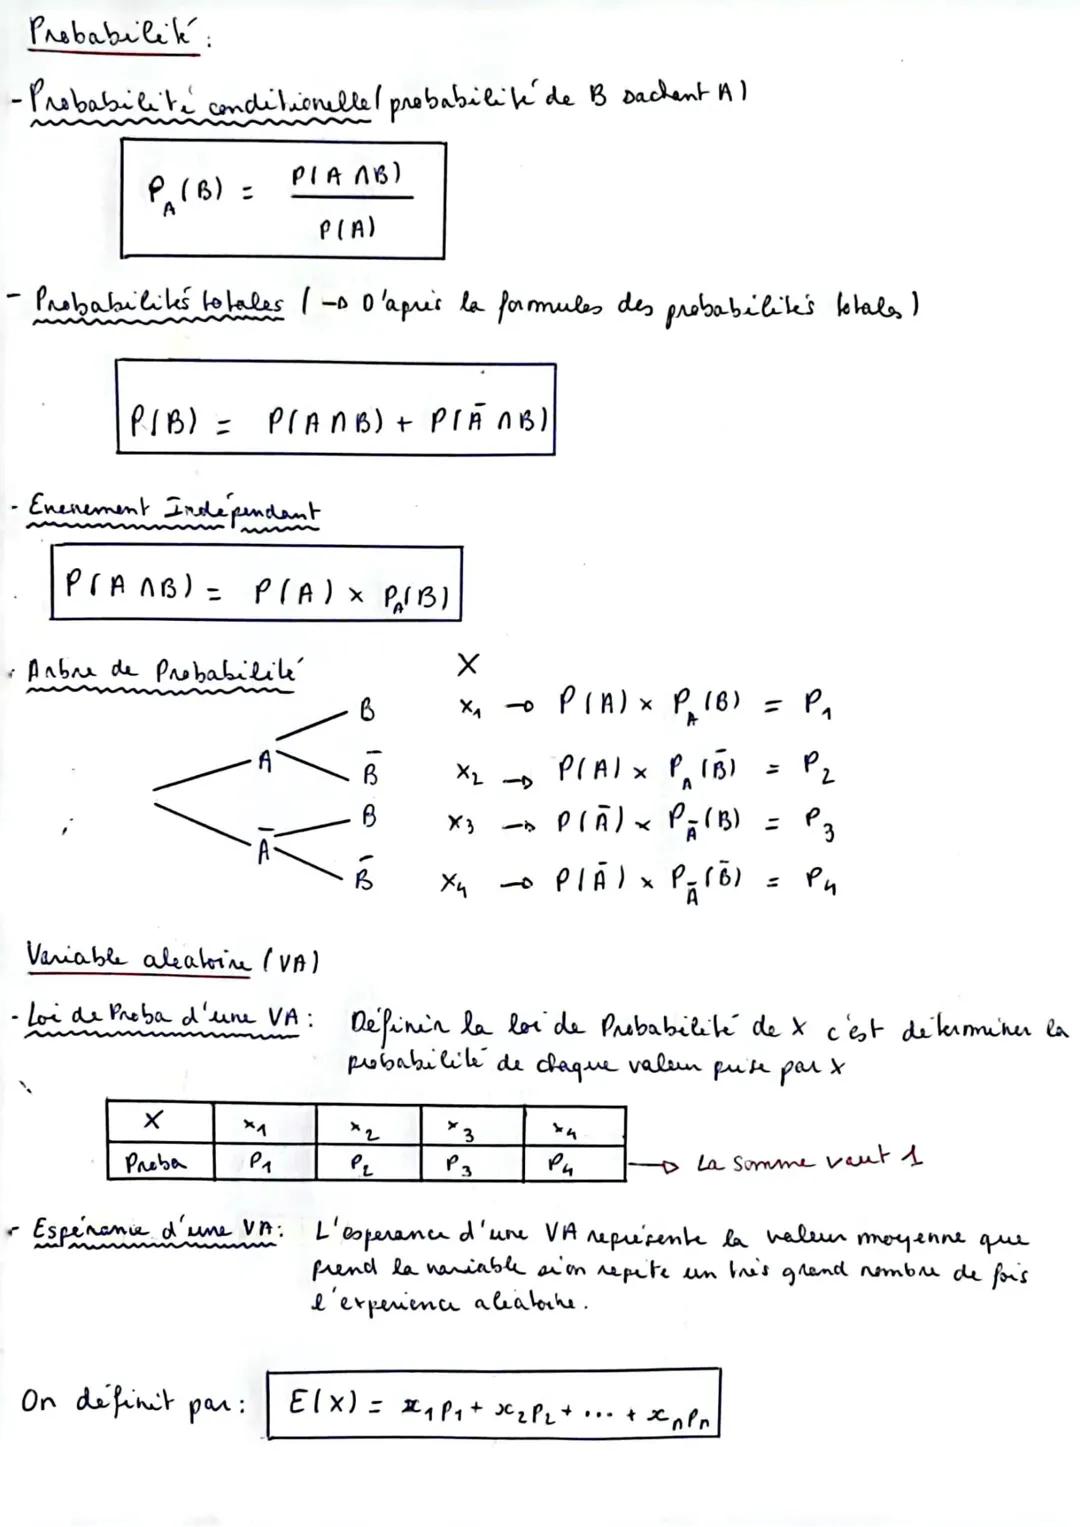 Probabilité :
- Probabilité conditionelle ( probabilité de B sachant A )
P_A(B) = P(A ∩ B) / P(A)
- Probabilités totales ( → D'après la formules des probabilités totales )
P(B) = P(A ∩ B) + P(Ā ∩ B)
- Evenement Indépendant
P(A ∩ B) = P(A) × P_A(B)
- Arbre de Probabilité
X
B x₁ → P(A) × P_A(B) = P₁
A
B̄ x₂ → P(A) × P_A(B̄) = P₂
B x₃ → P(Ā) × P_Ā(B) = P₃
Ā
B̄ x₄ → P(Ā) × P_Ā(B̄) = P₄
Variable aleatoire (VA)
- Loi de Proba d'une VA : Définir la loi de Probabilité de X c'est déterminer la
probabilité de chaque valeur prise par X
X x₁ x₂ x₃ x₄
Proba P₁ P₂ P₃ P₄ → La somme vaut 1
- Espérance d'une VA : L'esperance d'une VA représente la valeur moyenne que
prend la variable si on repète un très grand nombre de fois
l'experience aléatoire.
On définit par : E(X) = x₁p₁ + x₂p₂ + ... + xₙpₙ